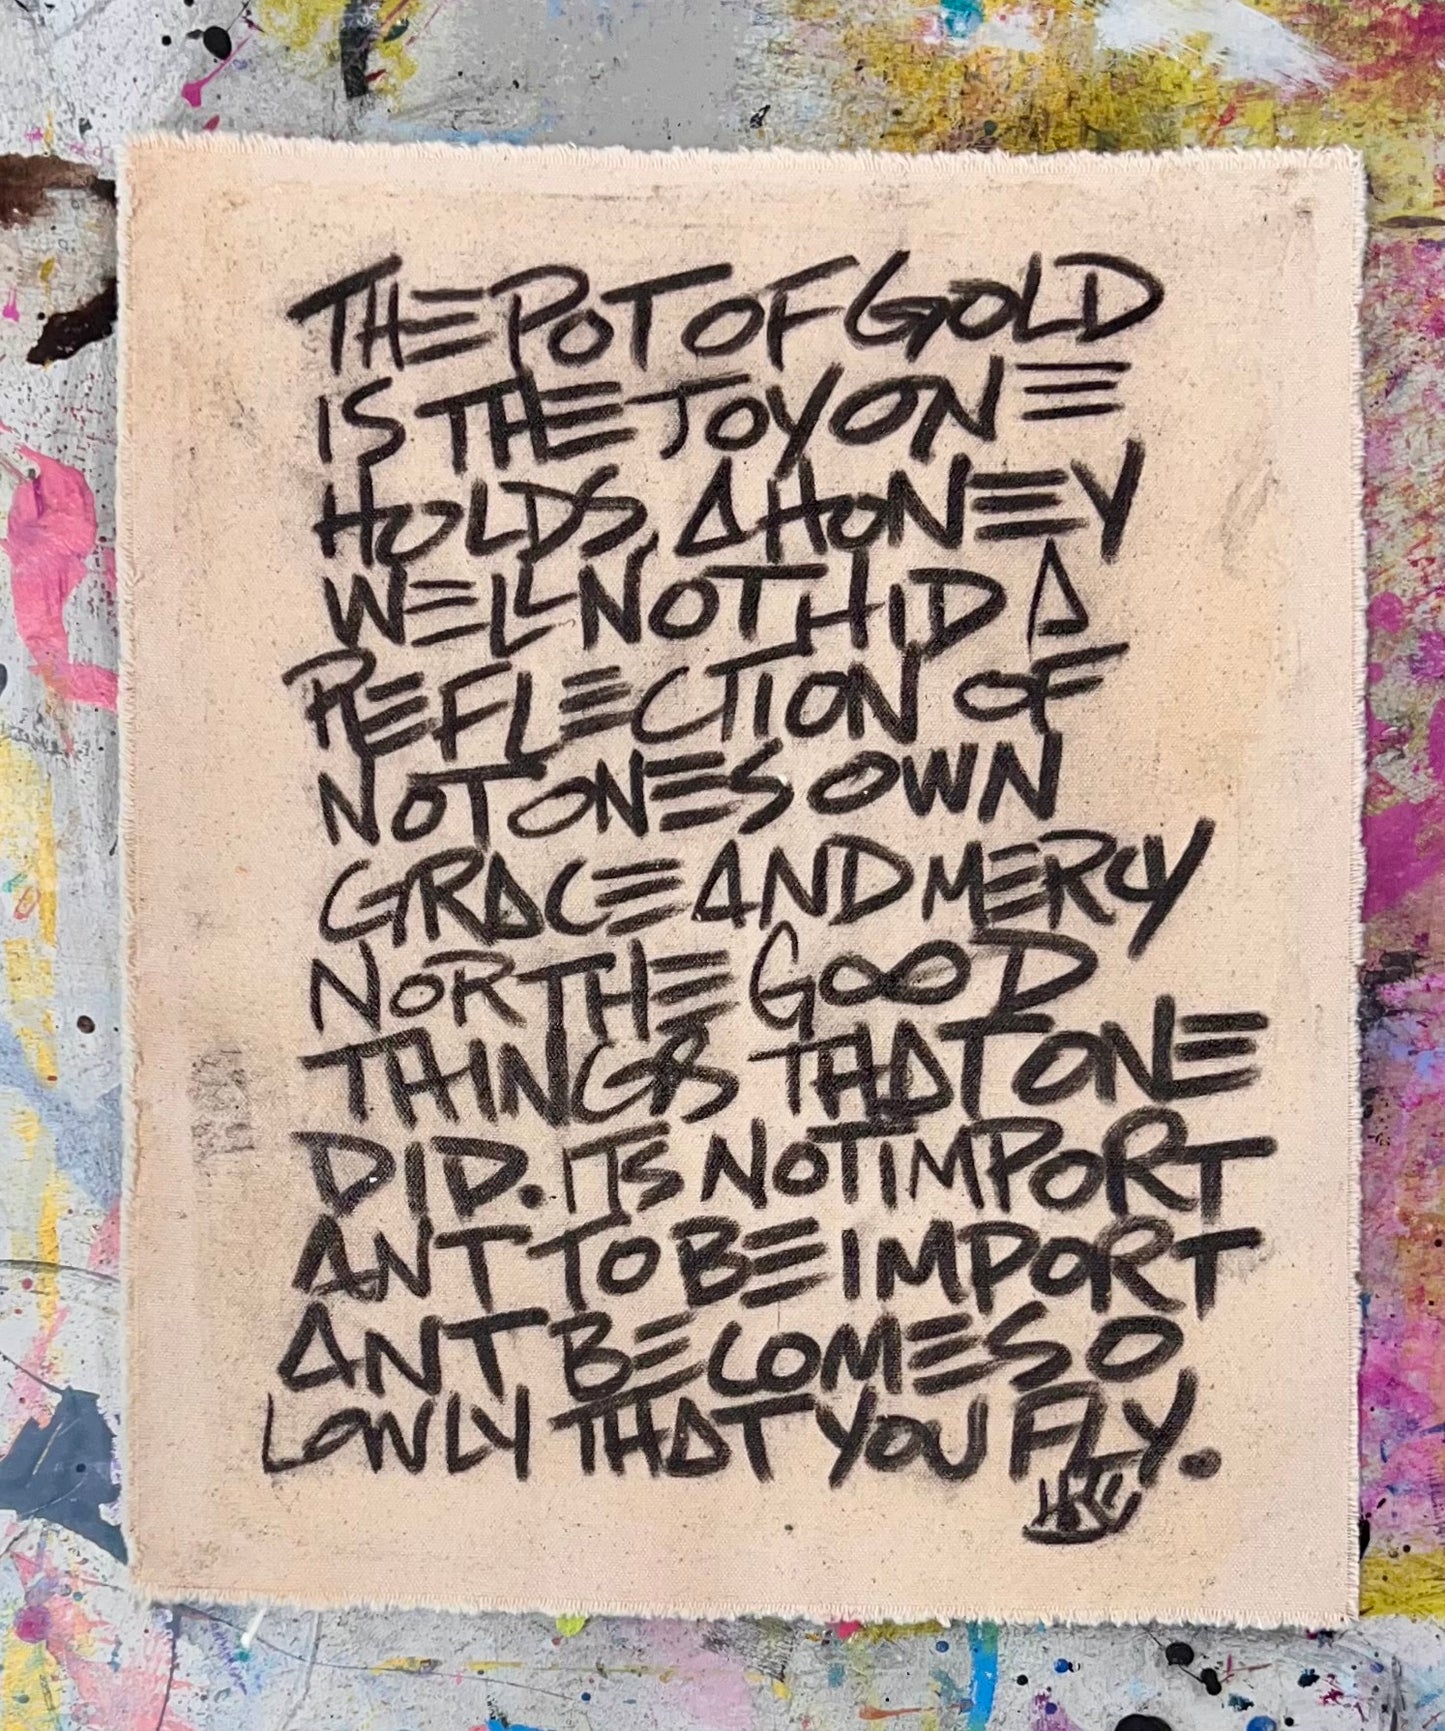 THE POT OF GOLD
IS THE JOY ONE
HOLDS, A HONEY
WELL NOT HID A
REFLECTION OF
NOT ONES OWN
GRACE AND MERCY
NOR THE GOOD
THINGS THAT ONE
DID. ITS NOT IMPORT
ANT TO BE IMPORT
ANT BECOME SO
LOWLY THAT YOU FLY.